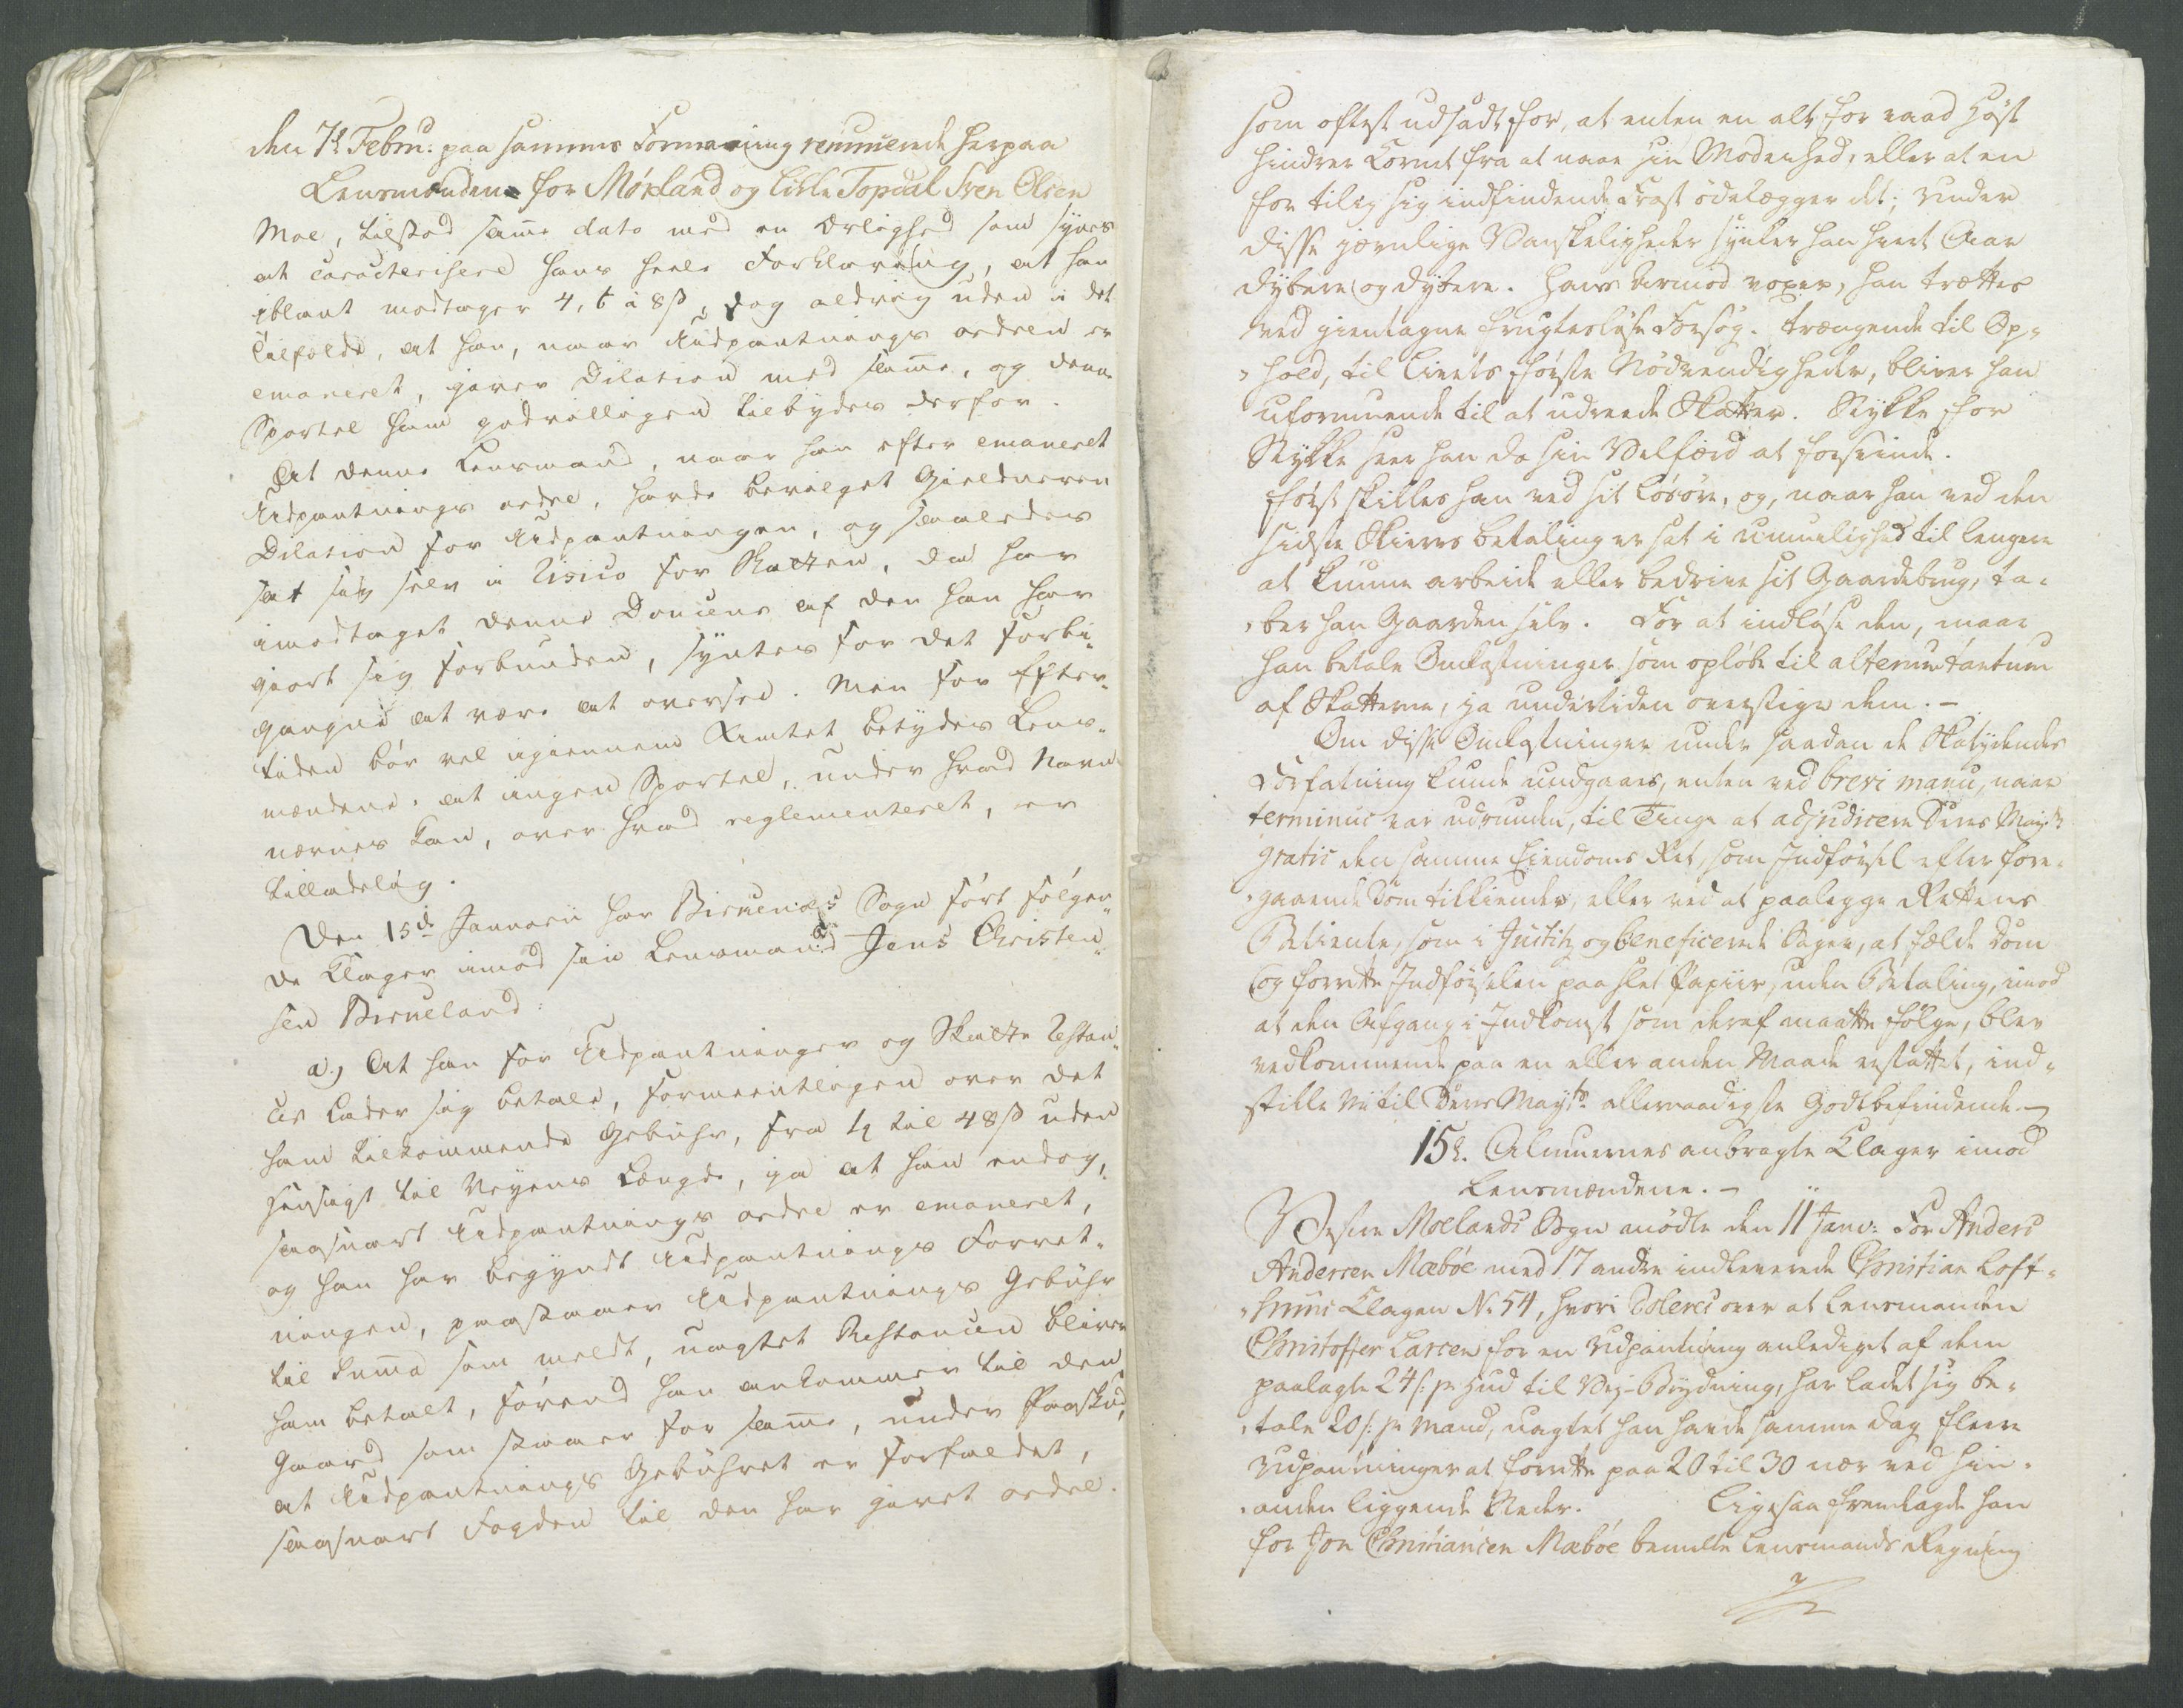 den 7de Febru: paa sammes Formaning renuncerede herpaa
Lensmanden for Mørland og lille Topdal Sven Olsen
Moe, tilstod samme dato med en Ærlighed som synes
at caracterisere hans heele Forklaring, at han
iblant modtager 4, 6 à 8 s, dog aldrig uden i det
tilfælde, at han, naar Udpantnings ordren er
emaneret, giver Dilation med samme, og denne
Sportel ham godvilligen tilbydes derfor.
At denne Lensmand, naar han efter emaneret
Udpantnings ordre, havde bevilget Gieldneren
Dilation for Udpantningen, og saaledes
sat sig selv i Risico for Skatten, da har
imodtaget denne Douceur af den han har
giort sig forbunden, syntes for det forbi¬
gangne at være at oversee. Men for Efter¬
tiden bør vel igiennem Amtet betydes Lens¬
mændene, at ingen Sportel, under hvad Navn
nævnes kan, over hvad reglementeret, er
tilladelig.
Den 15de Januarii har Birkenæs Sogn ført følgen¬
de Klager imod sin Lensmand Jens Christen¬
sen Birkeland:
a.) At han for Udpantninger og Skatte Restan¬
cer lader sig betale, formeentligen over det
ham tilkommende Gebühr, fra 12 til 48 s uden
hensigt til Veyens Længde, ja at han endog,
saasnart Udpantnings ordre er emaneret,
og han har begyndt Udpantnings Forret¬
ningen, paastaaer Udpantnings Gebühr
til Suma som meldt, uagtet Restancen bliver
ham betalt, førend han ankommer til den
Gaard som staaer for samme, under Paaskud,
at Udpantnings Gebühret er forfaldet,
saasnart Fogden til den har givet ordre.
som oftest udsadt for, at enten en alt for vaad Høst
hindrer Kornet fra at naae sin Modenhed, eller at en
for tilig sig indfindende Frost ödelægger det; Under
disse jævnlige Vanskeligheder synker han hvert Aar
dybere og dybere. Hans Armod voxer, han trættes
ved gientagne frugtesløse Forsøg. trængende til Op¬
hold, til Livets første Nødvendigheder, bliver han
uformuende til at udreede Skatter. Stykke for
Stykke seer han da sin Velfærd at forsvinde.
først skilles han ved sit Løsøre, og, naar han ved den
sidste Skiervs betaling er sat i umuelighed til lengere
at kunne arbeide eller bedrive sit Gaardebrug, ta¬
ber han Gaarden selv. For at indløse den, maae
han betale Omkostninger som opløbe til alterum tantum
af Skatterne, ja undertiden overstige dem. -
Om disse Omkostninger under saadan de Skatydendes
Forfatning kunde undgaaes, enten ved brevi manu, naar
terminus var udrunden, til Tinge at adjudicere Deres Mayts
gratis den samme Eiendoms Ret, som Indførsel efter fore¬
gaaende Dom tilkiendes, eller ved at paalegge Rettens
Betiente, som i Justitz og beneficerede Sager, at fælde Dom
og forrette Indførselen paa slet Papiir, uden Betaling, imod
at den Afgang i Indkomst som deraf maatte følge, blev
vedkommende paa en eller anden Maade erstattet, ind¬
stille Vi til Deres Mayts allernaadigste Godtbefindende. -
15de. Almuernes anbragte Klager imod
Lensmændene. -
Vestre Molands Sogn mødte den 11 Janv: For Anders
Andersen Mæbøe med 17 andre indleverede Christian Loft¬
huus Klagen No 54, hvori Doleres over at Lensmanden
Christoffer Larsen for en Udpantning anlediget af dem
paalagte 24 s: pr Hud til Vej-Brydning, har ladet sig be¬
tale 20 s: pr Mand, uagtet han havde samme dag fleere
Udpantninger at forrette paa 20 til 30 nær ved hin¬
anden liggende Steder. Ligesaa fremlagde han
for Jon Christiansen Mæbøe bemelte Lensmands Regning